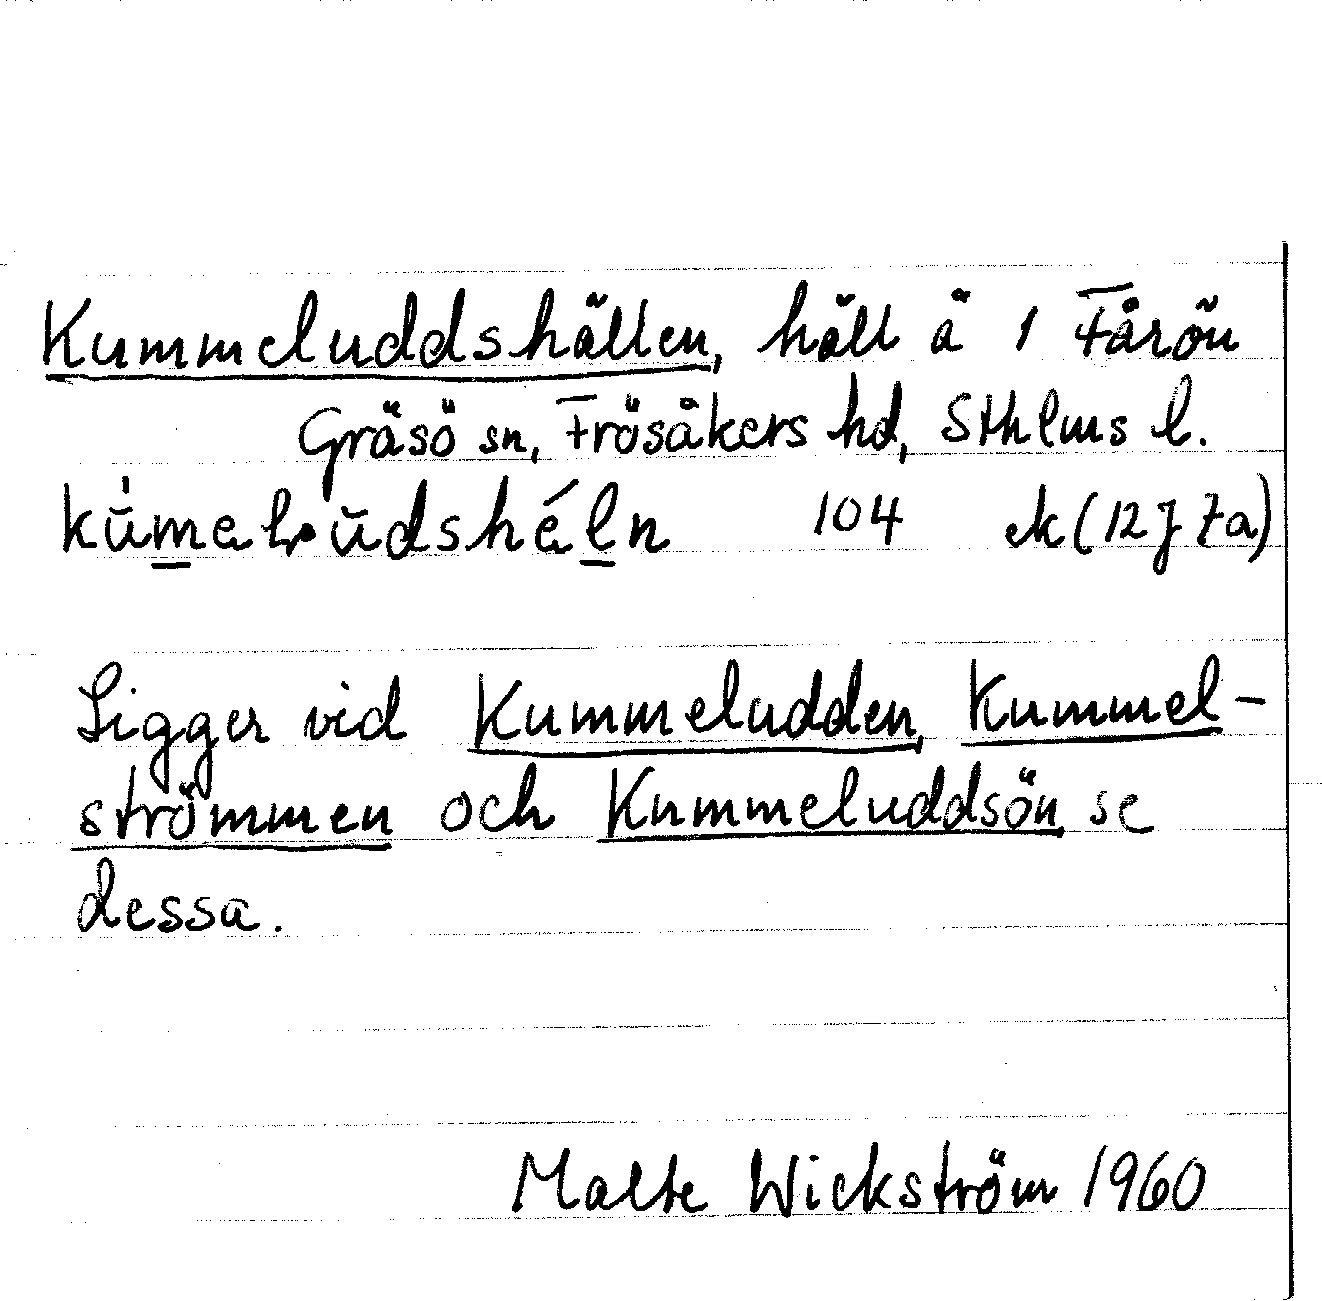 Kummeluddshällen, häll å 1 Fårön
Gräsö sn, Frösåkers hd, Sthlms l.
104 ek (12J7a)
Ligger vid Kummeludden, Kummel-
strömmen och Kummeluddsön se
dessa.
Malte Wickström 1960